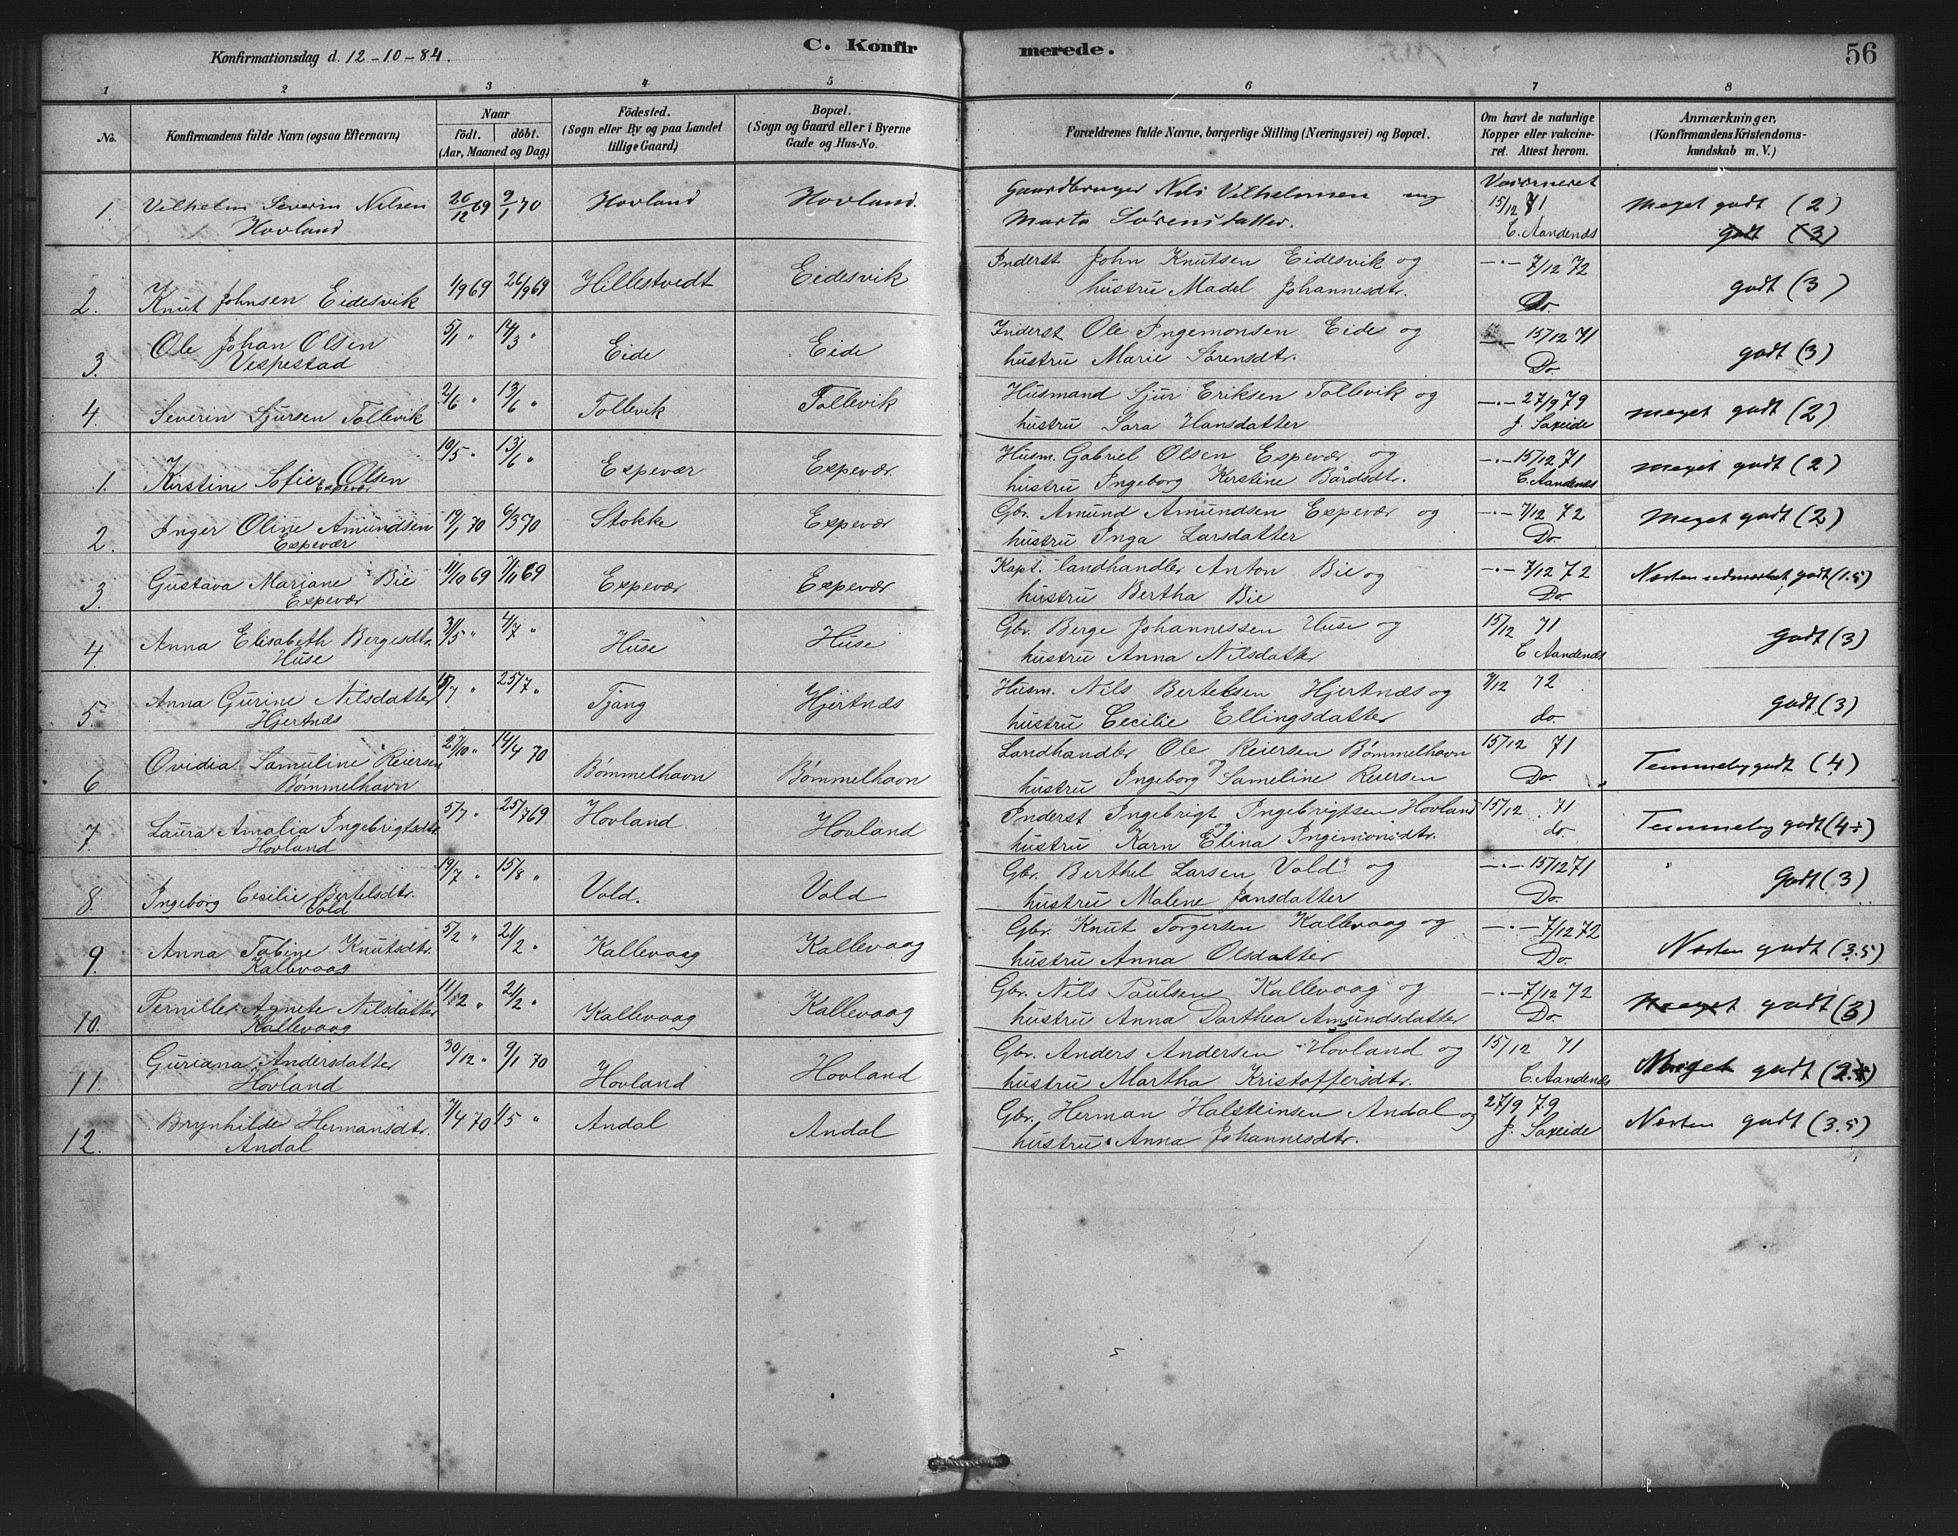 Konfirmationsdag d. 12-10-84.
C. Konfir
merede.
56
1 2 3 4 5 6 7 8
No. Konfirmandens fulde Navn (ogsaa Efternavn) Naar födt. döbt. (Aar, Maaned og Dag) Födested. (Sogn eller By og paa Landet tillige Gaard) Bopæl. (Sogn og Gaard eller i Byerne Gade og Hus-No. Forældrenes fulde Navne, borgerlige Stilling (Næringsvei) og Bopæl. Om havt de naturlige Kopper eller vakcineret. Attest herom. Anmærkninger, (Konfirmandens Kristendomskundskab m. V.)
1. Vilhelm Severin Nilsen 26/12 69 9/1 70 Hovland Hovland. Gaardbruger Nils Vilhelmsen og 15/12 71 Meget godt (2)
Hovland Marta Sörensdatter. C. Aandenæs godt (3)
2. Knut Johnsen Eidesvik 1/9 69 26/9 69 Hillestvedt Eidesvik Inderst John Knutsen Eidesvik og -"- 7/12 72 godt (3)
hustru Madel Johannesdtr. Do.
3. Ole Johan Olsen 5/1 " 14/3 " Eide Eide Inderst Ole Ingemonsen Eide og -"- 15/12 71 godt (3)
Vespestad hustru Marie Sørensdtr. Do.
4. Severin Sjursen Tollevik 2/6 " 13/6 " Tollevik Tollevik Husmand Sjur Eriksen Tollevik og -"- 27/9 79 meget godt (2)
hustru Sara Hansdatter J. Saxeide
1. Kirstine Sofie Olsen 10/5 " 13/6 " Espevær Espevær. Husm. Gabriel Olsen Espevær og -"- 15/12 71 meget godt (2)
Espevær hustru Ingeborg Kerstine Bårdsdt. C. Aandenæs
2. Inger Oline Amundsen 19/1 70 6/3 70 Stokke Espevær Gbr. Amund Amundsen Espevær og -"- 7/12 72 Meget godt (2)
Espevær hustru Inga Larsdatter Do.
3. Gustava Mariane Bie 11/10 69 7/11 69 Espevær Espevær Kapt. landhandler Anton Bie og -"- 7/12 72 Næsten udmærket godt (1.5)
Espevær hustru Bertha Bie Do.
4. Anna Elisabeth Bergesdtr. 31/5 " 4/7 " Huse Huse Gbr. Berge Johannessen Huse og 15/12 71 Godt (3)
Huse hustru Anna Nilsdatter C Aandenæs
5. Anna Gurine Nilsdatter 15/7 " 25/7 " Tjang Hjertnæs Husm. Nils Bertelsen Hjertnæs og 7/12 72 godt (3)
Hjertnæs hustru Cecilie Ellingsdatter do.
6 Ovidia Samuline Reiersen 27/10 " 14/4 70 Bømmelhavn Bømmelhavn Landhandler Ole Reiersen Bømmelhavn 15/12 71 Temmelig godt (4)
Bømmelhavn hustru Ingeborg Sameline Reiersen Do.
7. Laura Amalia Ingebrigtsdtr 5/7 " 25/7 69 Hovland Hovland Inderst Ingebrigt Ingebrigtsen Hovland 15/12 71 Temmelig godt (4÷)
Hovland hustru Karn Elina Ingemonsdtr. do.
8. Ingeborg Cecilie Bertelsdtr. 19/7 " 15/8 " Vold. Vold Gbr. Berthel Larsen Vold og -"- 15/12 71 Godt (3)
Vold hustru Malene Jansdatter Do.
9. Anna Tobine Knutsdtr. 5/2 " 21/2 " Kallevaag Kallevaag Gbr. Knut Torgersen Kallevaag og -"- 7/12 72 Næsten godt (3.5)
Kallevaag hustru Anna Olsdatter Do.
10. Pernille Agnete Nilsdatter 11/12 " 21/2 " Kallevaag Kallevaag Gbr. Nils Paulsen Kallevaag og -"- 7/12 72 Meget godt (3)
Kallevaag hustru Anna Dorthea Amundsdatter Do.
11. Guriana Andersdatter 30/12 " 9/1 70 Hovland Hovland Gbr. Anders Andersen Hovland og 15/12 71 Meget godt
Hovland hustru Martha Kristoffersdtr. C. Aandenæs
12. Brynhilde Hermansdtr. 7/4 70 1/5 " Andal Andal Gbr. Herman Halsteinsen Andal og 27/9 79 Næsten godt (3.5)
Andal hustru Anna Johannesdtr. J. Saxeide